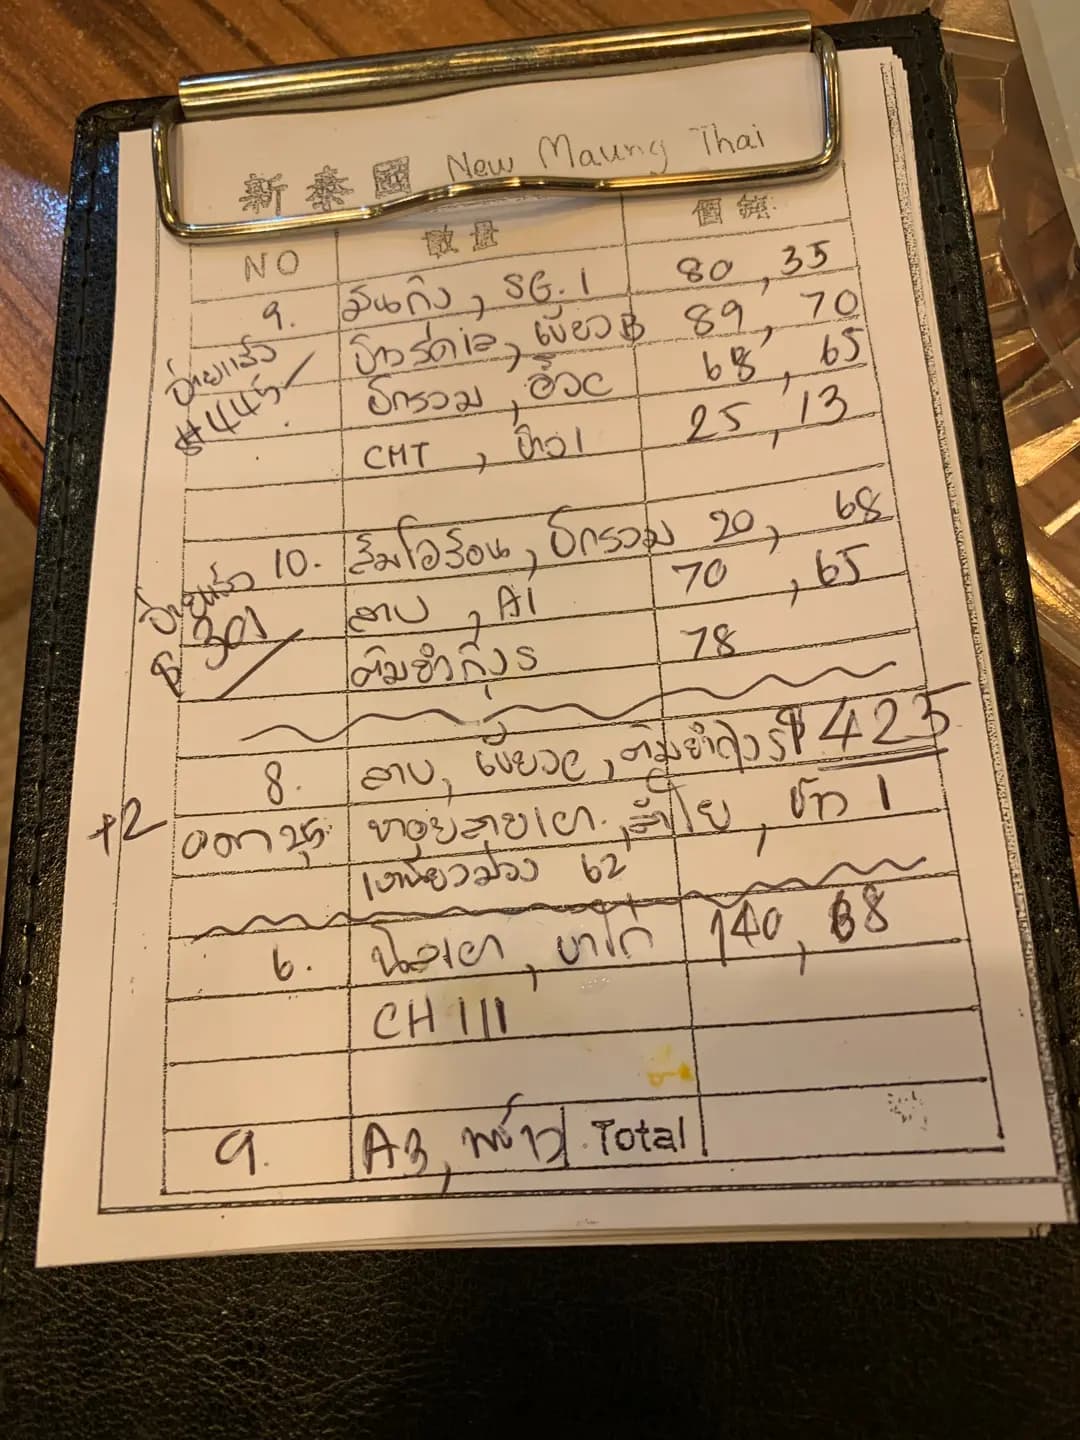 新泰國 New Maung Thai
NO 數量 價錢
9. มันกุ้ง, SG.1 80, 35
จ่ายแล้ว ข้าวรัดเล, เขียวB 89, 70
$445 ปีกรวม, อั้วC 68, 65
CMT, ข้าว1 25, 13
10. ส้มโอร้อน, ปีกรวม 20, 68
จ่ายแล้ว ลาบ, A1 70, 65
$301 ต้มยำกุ้งS 78
8. ลาบ, เขียวC, ต้มยำกุ้งS $425
+2 หอยลายเผา, ลำไย, ข้าว 1
เหนียวม่วง 62
6. นิลเผา, ขาไก่ 140, 68
CH III
9. A3, พร้าว Total